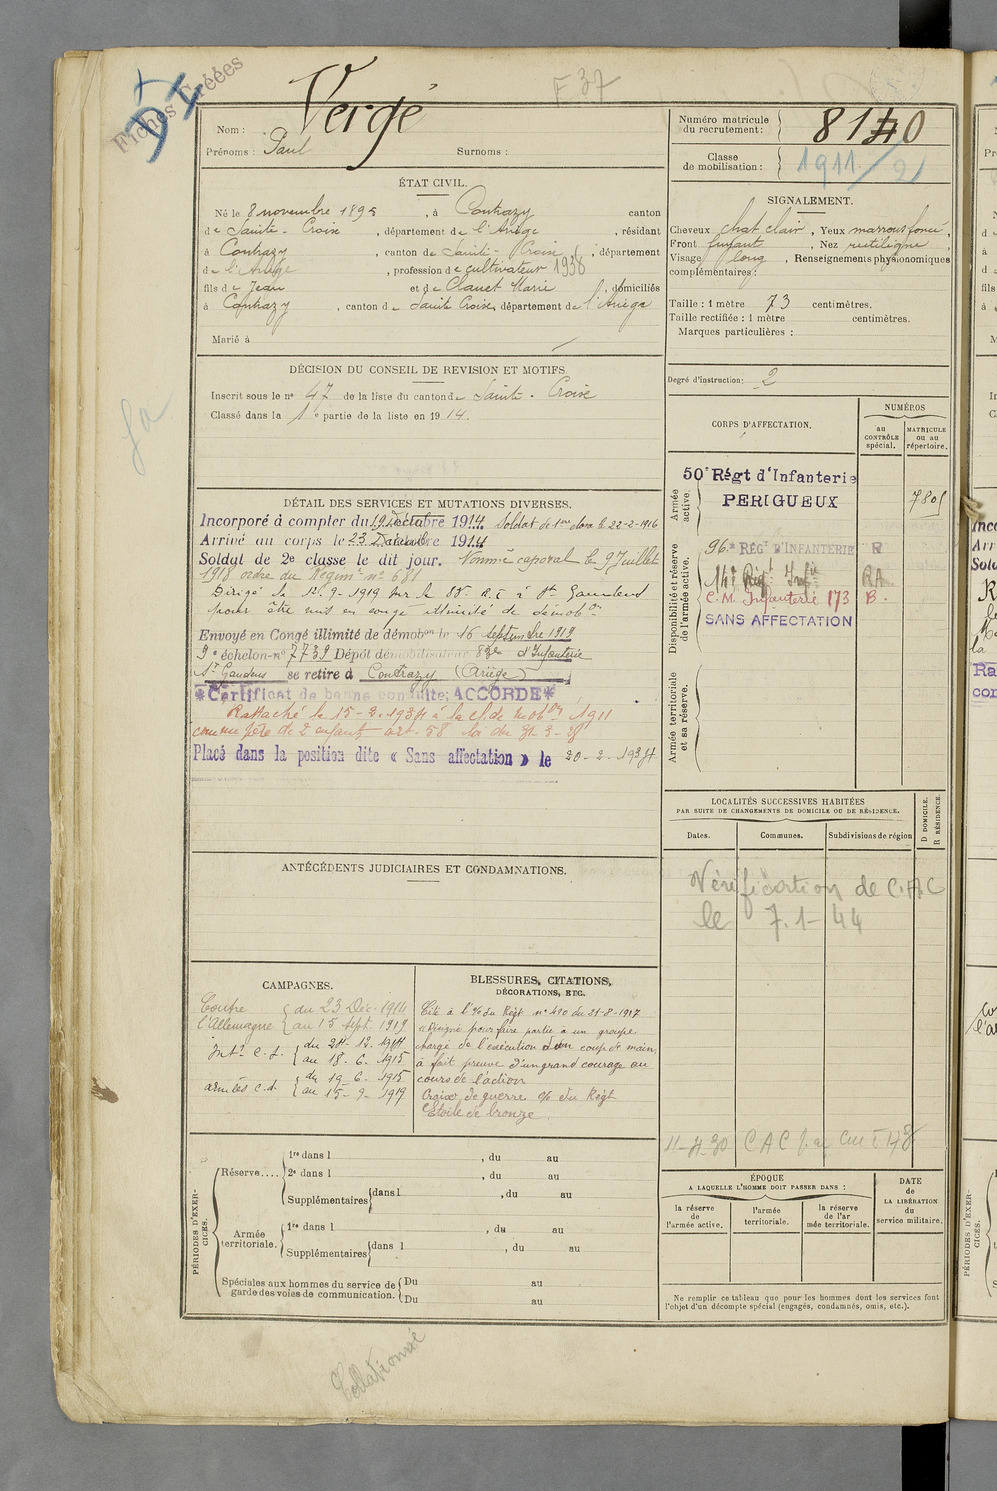 Fiches Créées
F 37
Nom : Vergé
Prénoms : Paul Surnoms :
Numéro matricule du recrutement : 8140
Classe de mobilisation : 1911/2
ÉTAT CIVIL.
Né le 8 novembre 1895, à Contrazy canton
de Sainte-Croix, département de l'Ariège, résidant
à Contrazy, canton de Sainte-Croix, département
de l'Ariège, profession de cultivateur 1938
fils de Jean et de Claret Marie, domiciliés
à Contrazy, canton de Sainte Croix, département de l'Ariège
Marié à
SIGNALEMENT.
Cheveux chat clair, Yeux marrons foncé,
Front fuyant, Nez rectiligne,
Visage long, Renseignements physionomiques
complémentaires :
Taille : 1 mètre 73 centimètres.
Taille rectifiée : 1 mètre centimètres.
Marques particulières :
Degré d'instruction : 2
DÉCISION DU CONSEIL DE REVISION ET MOTIFS
Inscrit sous le no 47 de la liste du canton de Sainte-Croix
Classé dans la 1e partie de la liste en 1914.
CORPS D'AFFECTATION.
NUMÉROS
au CONTRÔLE spécial.
MATRICULE ou au répertoire.
Armée active.
50e Régt d'Infanterie
PERIGUEUX
7805
Disponibilité et réserve de l'armée active.
96e RÉGt D'INFANTERIE R
14e Régt Infie RA
C.M. Infanterie 173 B.
SANS AFFECTATION
Armée territoriale et sa réserve.
DÉTAIL DES SERVICES ET MUTATIONS DIVERSES.
Incorporé à compter du 19 Décembre 1914. Soldat de 1ère classe le 22-2-1916
Arrivé au corps le 23 Décembre 1914
Soldat de 2e classe le dit jour. Nommé caporal le 9 Juillet
1918 ordre du Régimt no 681
Dirigé le 12-9-1919 sur le 83e R.I. à St Gaudens
pour être mis en congé illimité de démobon
Envoyé en Congé illimité de démobon le 16 septembre 1919
9e échelon no 7739 Dépôt démobilisateur 83e d'Infanterie
St Gaudens se retire à Contrazy (Ariège)
*Certificat de bonne conduite, ACCORDÉ*
Rattaché le 15-2-1934 à la cl. de mobon 1911
comme père de 2 enfants art. 58 loi du 31-3-28
Placé dans la position dite « Sans affectation » le 20-2-1934
LOCALITÉS SUCCESSIVES HABITÉES
PAR SUITE DE CHANGEMENTS DE DOMICILE OU DE RÉSIDENCE.
Dates. Communes. Subdivisions de région
D DOMICILE. R RÉSIDENCE.
Vérification de C.A.C
le 7.1-44
ANTÉCÉDENTS JUDICIAIRES ET CONDAMNATIONS.
CAMPAGNES.
Contre l'Allemagne du 23 Déc. 1914
au 15 Sept. 1919
Intr C.S. du 24. 12. 1914
au 18. 6. 1915
armées C.d. du 19-6-1915
au 15-9-1919
BLESSURES, CITATIONS,
DÉCORATIONS, ETC.
Cité à l'% du Régt no 490 du 31-8-1917
"Désigné pour faire partie à un groupe
chargé de l'exécution d'un coup de main,
à fait preuve d'un grand courage au
cours de l'action
Croix de guerre % du Régt
Etoile de bronze.
11-4-30 C A C
PÉRIODES D'EXERCICES.
Réserve.... 1re dans l , du au
2e dans l , du au
Supplémentaires dans l , du au
Armée territoriale. 1re dans l , du au
Supplémentaires dans l , du au
Spéciales aux hommes du service de garde des voies de communication. Du au
Du au
ÉPOQUE
A LAQUELLE L'HOMME DOIT PASSER DANS :
la réserve de l'armée active.
l'armée territoriale.
la réserve de l'armée territoriale.
DATE de LA LIBÉRATION du service militaire.
Ne remplir ce tableau que pour les hommes dont les services font
l'objet d'un décompte spécial (engagés, condamnés, omis, etc.).
Collationné